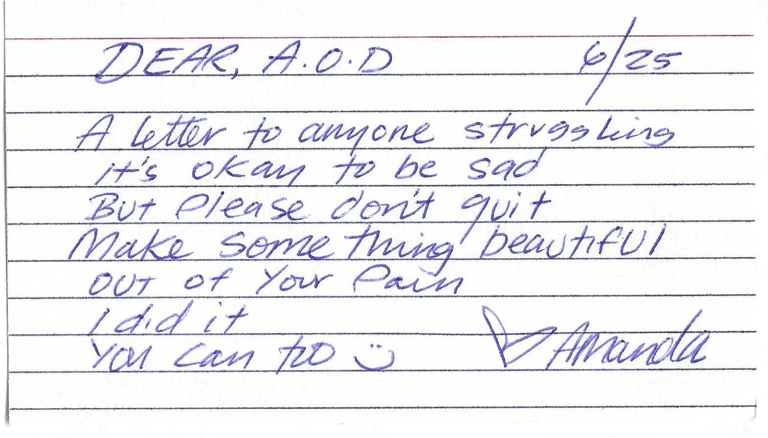 DEAR, A.O.D 6/25
A letter to anyone struggling
it's okay to be sad
But Please don't quit
Make something beautiful
out of Your Pain
I did it
You can too :) ♡ Amanda